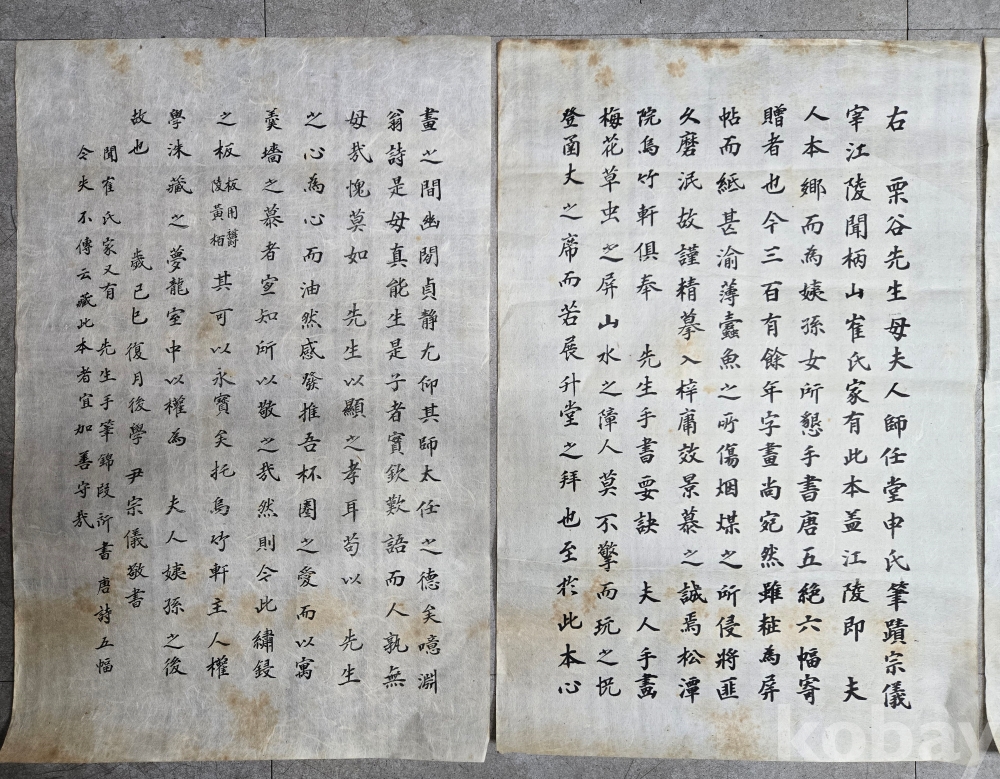 右 栗谷先生母夫人師任堂申氏筆蹟宗儀
宰江陵聞柄山崔氏家有此本盖江陵即 夫
人本鄉而為姨孫女所懇手書唐五絶六幅寄
贈者也今三百有餘年字畫尚宛然雖粧為屏
帖而紙甚渝薄蠹魚之所傷烟煤之所侵將匪
久磨泯故謹精摹入梓庸效景慕之誠焉松潭
院烏竹軒俱奉 先生手書要訣 夫人手畵
梅花草虫之屏山水之障人莫不擎而玩之怳
登函丈之席而若展升堂之拜也至於此本心
畫之間幽閒貞静尤仰其師太任之德矣噫淵
翁詩是母真能生是子者實欽歎語而人孰無
母哉愧莫如 先生以顯之孝耳苟以 先生
之心為心而油然感發推吾杯圈之愛而以寓
羹墻之慕者宣知所以敬之哉然則今此繡鋟
之板 板用欝陵黃栢 其可以永寳矣托烏竹軒主人權
學洙藏之夢龍室中以權為 夫人姨孫之後
故也 歲己巳復月後學尹宗儀敬書
聞崔氏家又有 先生手筆錦段所書唐詩五幅
今失不傳云藏此本者宜加善守哉
kobay